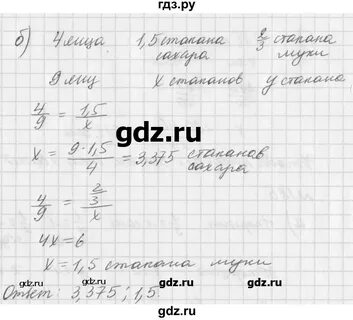 гдз.ру
б) 4 яйца 1,5 стакана сахара 2/3 стакана муки
9 яиц x стаканов y стакана
4/9 = 1,5/x
x = 9·1,5/4 = 3,375 стаканов сахара
4/9 = 2/3/x
4x = 6
x = 1,5 стакана муки
Ответ: 3,375; 1,5.
гдз.ру
гдз.ру
гдз.ру